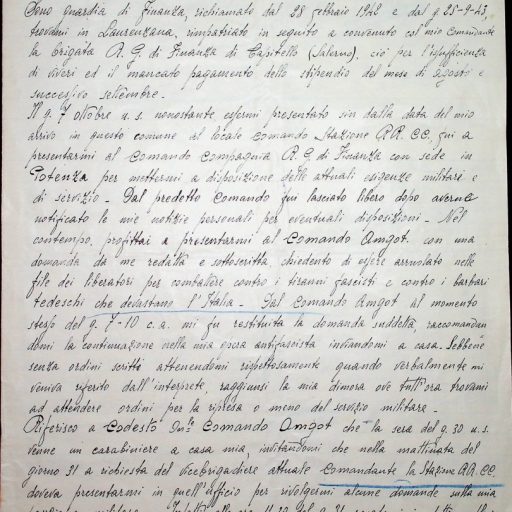 Sono guardia di Finanza, richiamato dal 28 febbraio 1942 e dal g 25-9-43,
trovomi in Laurenzana, rimpatriato in seguito a convenuto col mio Comandante
la brigata R. G. di Finanza di Capitello (Salerno), ciò per l'insufficienza
di viveri ed il mancato pagamento dello stipendio del mese di agosto e
successivo settembre.
Il g. 7 ottobre u. s. nonostante essermi presentato sin dalla data del mio
arrivo in questo comune al locale Comando Stazione RR. CC. fui a
presentarmi al Comando Compagnia R. G. di Finanza con sede in
Potenza per mettermi a disposizione delle attuali esigenze militari e
di servizio - Dal predetto Comando fui lasciato libero dopo averne
notificato le mie notizie personali per eventuali disposizioni - Nel
contempo, profittai a presentarmi al Comando Amgot con una
domanda da me redatta e sottoscritta chiedento di essere arruolato nelle
file dei liberatori per combattere contro i tiranni fascisti e contro i barbari
tedeschi che devastano l'Italia - Dal Comando Amgot al momento
stesso del g. 7-10 c. a. mi fu restituita la domanda suddetta, raccomandan
domi la continuazione nella mia opera antifascista inviandomi a casa. Sebbene
senza ordini scritti attenendomi rispettosamente quando verbalmente mi
veniva riferito dall'interprete, raggiunsi la mia dimora ove tutt'ora trovomi
ad attendere ordini per la ripresa o meno del servizio militare -
Riferisco a Codesto On.le Comando Amgot che la sera del g. 30 u. s.
venne un carabiniere a casa mia, invitandomi che nella mattinata del
giorno 31 a richiesta del Vicebrigadiere attuale Comandante la Stazione RR. CC.
doveva presentarmi in quell'ufficio per rivolgermi alcune domande sulla mia